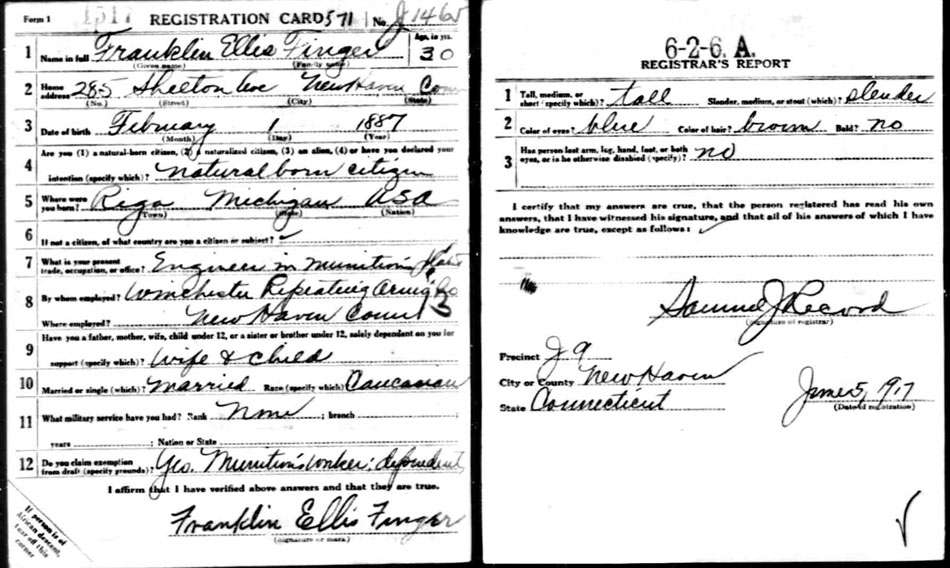 Form 1 1517 REGISTRATION CARD 571 No. J 146
1 Name in full Franklin Ellis Finger Age, in yrs. 30
(Given name) (Family name)
2 Home address 285 Shelton Ave New Haven Con
(No.) (Street) (City) (State)
3 Date of birth February 1 1887
(Month) (Day) (Year)
Are you (1) a natural-born citizen, (2) a naturalized citizen, (3) an alien, (4) or have you declared your
4 intention (specify which)? Natural born citizen
5 Where were you born? Riga Michigan USA
(Town) (State) (Nation)
6 If not a citizen, of what country are you a citizen or subject? ✓
7 What is your present trade, occupation, or office? Engineer in Munition
8 By whom employed? Winchester Repeating Arms Co
Where employed? New Haven Conn 13
9 Have you a father, mother, wife, child under 12, or a sister or brother under 12, solely dependent on you for
support (specify which)? Wife & child
10 Married or single (which)? Married Race (specify which)? Caucasian
11 What military service have you had? Rank None ; branch
years ; Nation or State
12 Do you claim exemption from draft (specify grounds)? Yes. Munitions worker; dependent
I affirm that I have verified above answers and that they are true.
Franklin Ellis Finger
(Signature or mark)
If person is of
African descent,
tear off this
corner
6-2-6. A.
REGISTRAR'S REPORT
1 Tall, medium, or short (specify which)? tall Slender, medium, or stout (which)? slender
2 Color of eyes? blue Color of hair? brown Bald? No
3 Has person lost arm, leg, hand, foot, or both eyes, or is he otherwise disabled (specify)? No
I certify that my answers are true, that the person registered has read his own
answers, that I have witnessed his signature, and that all of his answers of which I have
knowledge are true, except as follows: ✓
Samuel J Record
(Signature of registrar)
Precinct J 9
City or County New Haven
State Connecticut June 5, 1917
(Date of registration)
✓